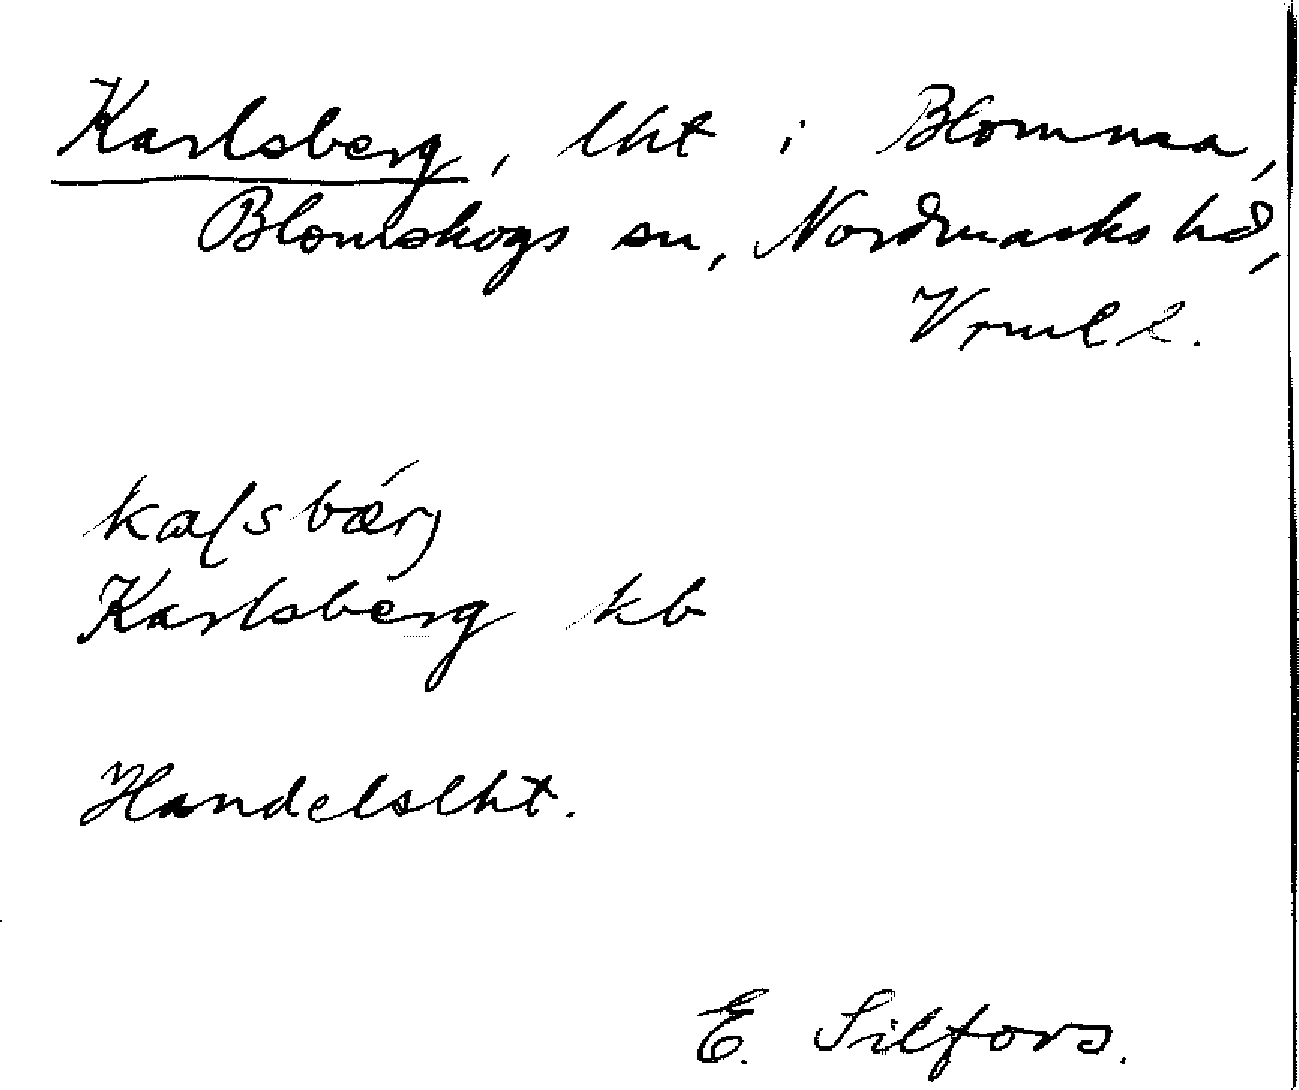 Karlsberg, lht i Blomma,
Blomskogs sn, Nordmarks hd,
Vrml l.
kaɭsbærj
Karlsberg kb
Handelslht.
E. Silfors.